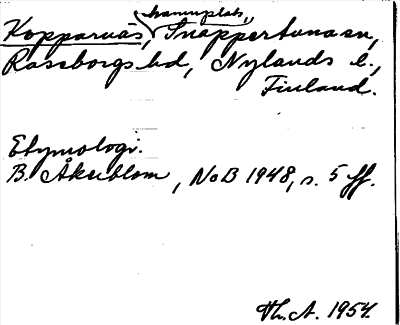 hamnplats,
Kopparnäs, Snappertuna sn,
Raseborgs hd, Nylands l.,
Finland.
Etymologi.
B. Åkerblom, NoB 1948, s. 5 ff.
Th. A. 1954.